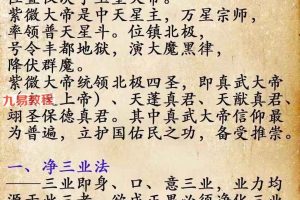 紫微大帝是中天星主，万星宗师，
率领普天星斗。位镇北极，
号令丰都地狱，演大魔黑律，
降伏群魔。
紫微大帝统领北极四圣，即真武大帝
九易教程 上帝）、天蓬真君、天猷真君、
翊圣保德真君。其中真武大帝信仰最
为普遍，立护国佑民之功，备受推崇。
一、净三业法
——三业即身、口、意三业，业力均